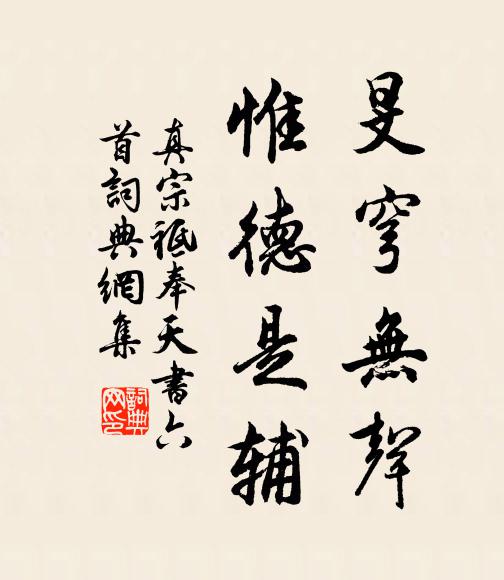 旻穹無聲
惟德是輔
真宗祗奉天書六
首詞典網集
詞典網印